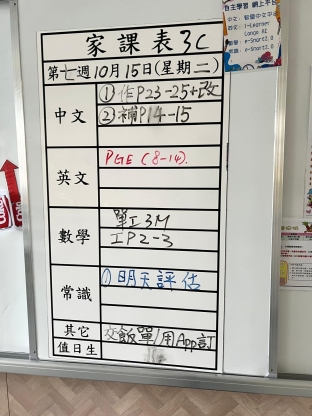 家課表3C
第七週10月15日(星期二)
中文
①作P23-25+改
②補P14-15
英文
PGE (8-14).
數學
單工3M
工P2-3
常識
①明天評估
其它
交飯單/用App訂
值日生
自主學習 網上平台